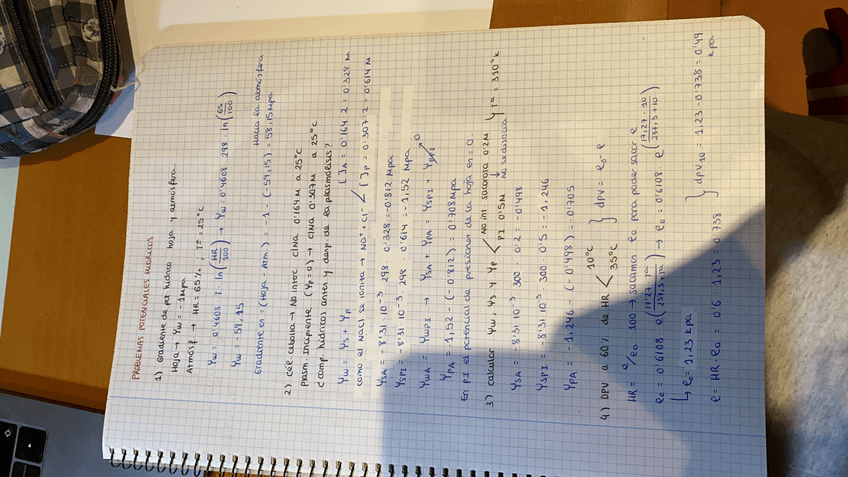 PROBLEMAS POTENCIALES HÍDRICOS
1) Gradiente de pot hídrico hoja y atmósfera
Hoja → Ψw = -1 Mpa
Atmósf → HR = 65% , Tª = 25°C
Ψw = 0'4608 · T · ln(HR/100) → Ψw = 0'4608 · 298 · ln(65/100)
Ψw = -59,15
Gradiente en = (Hoja - Atm) = -1 - (-59,15) = 58,15 Mpa
Hacia la atmósfera
2) Cél. cebolla → No interc ClNa 0'164 M a 25°C
Plasm. Incipiente (Ψp = 0) → ClNa 0'307 M a 25°C
c comp. hídricos antes y desp de la plasmólisis?
Ψw = Ψs + Ψp
como el NaCl se ioniza → Na⁺ + Cl⁻
[ ]A = 0'164 · 2 = 0'328 M
[ ]P = 0'307 · 2 = 0'614 M
ΨSA = -8'31 · 10⁻³ · 298 · 0'328 = -0'812 Mpa
ΨSPI = -8'31 · 10⁻³ · 298 · 0'614 = -1,52 Mpa
ΨWA = ΨWPI → ΨSA + ΨPA = ΨSPI + ΨPPI 0
ΨPA = -1,52 - (-0'812) = 0'708 Mpa
En P.I el potencial de presiones de la hoja en = 0.
3) calcular Ψw, Ψs y Ψp
No ini sacarosa 0'2 M
PI 0'5 M
no se ioniza
Tª = 310°K
ΨSA = -8'31 · 10⁻³ · 300 · 0'2 = -0'498
ΨSPI = -8'31 · 10⁻³ · 300 · 0'5 = -1,246
ΨPA = -1'246 - (-0'498) = 0'705
4) DPV a 60% de HR
10°C
35°C
DPV = e₀ - e
HR = e/e₀ · 100 → sacamos e₀ para poder sacar e
e₀ = 0'6108 · e (17'27 · Tª / 237,3 + Tª) → e₀ = 0'6108 · e (17,27 · 10 / 237,3 + 10)
↳ e₀ = 1,23 kpa
e = HR · e₀ = 0'6 · 1,23 = 0'738
DPV10 = 1,23 - 0'738 = 0'49 kpa